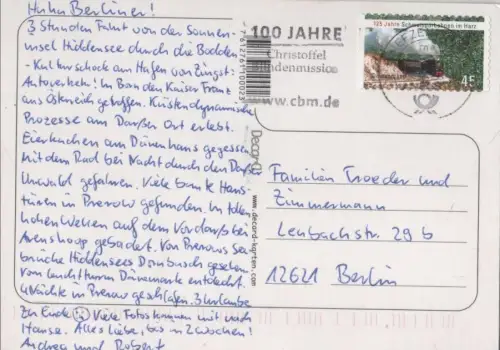 Huhu Berliner!
3 Stunden Fahrt von der Sonnen-
insel Hiddensee durch die Bodden
- Kulturschock am Hafen von Zingst:
Autoverkehr! In Born den Kaiser Franz
aus Österreich getroffen. Küstendynamische
Prozesse am Darßer Ort erlebt.
Eierkuchen am Dünenhaus gegessen
Mit dem Rad bei Nacht durch den Darßer
Urwald gefahren. Viele bunte Haus-
türen in Prerow gefunden. In tollen
hohen Wellen auf dem Vordarß bei
Ahrenshoop gebadet. Von Prerows See-
brücke Hiddensees Dornbusch gesehen.
Vom Leuchtturm Dänemark entdeckt.
Nächte in Prerow geschlafen. 3 Urlaube
zu Ende ☹ Viele Fotos kommen mit nach
Hause. Alles Liebe, bis in 2 Wochen!
Andrea und Robert
100 JAHRE
Christoffel
Blindenmission
www.cbm.de
125 Jahre Schmalspurbahnen im Harz
45
Decard
www.decard-karten.com
Familien Troeder und
Zimmermann
Lenbachstr. 29 b
12621 Berlin